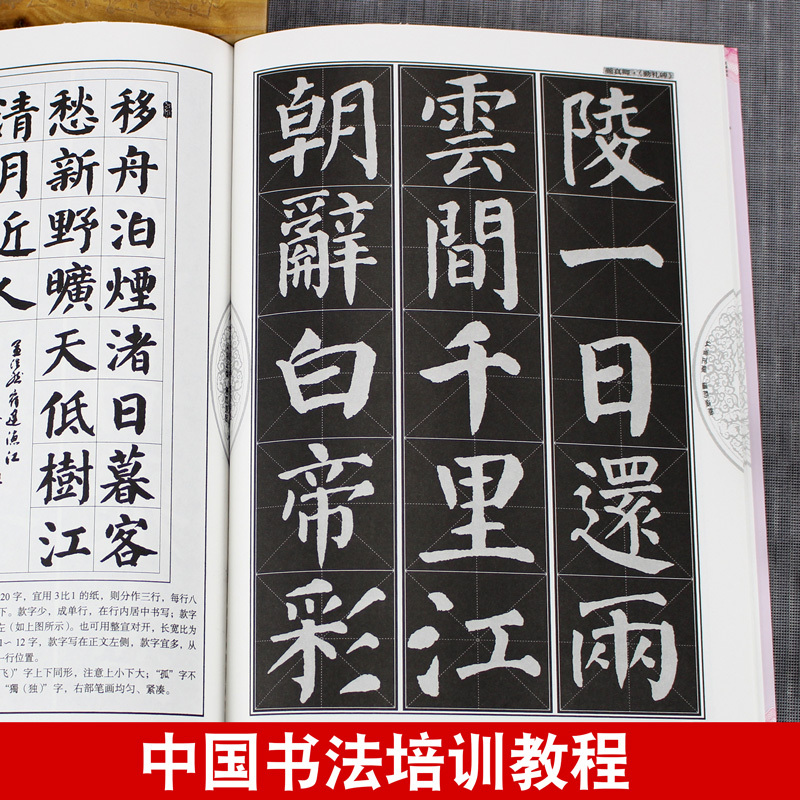 移舟泊煙渚日暮客
愁新野曠天低樹江
清月近人
孟浩然宿建德江
20 字，宜用 3比1 的纸，则分作三行，每行八
下。款字少，成单行，在行内居中书写；款字
左（如上图所示）。也可用整宣对开，长宽比为
1～12 字，款字写在正文左侧，款字宜多，从
一行位置。
飞）”字上下同形，注意上小下大；“孤”字不
“獨（独）”字，右部笔画均匀、紧凑。
颜真卿·《勤礼碑》
朝辭白帝彩
雲間千里江
陵一日還兩
中国书法培训教程